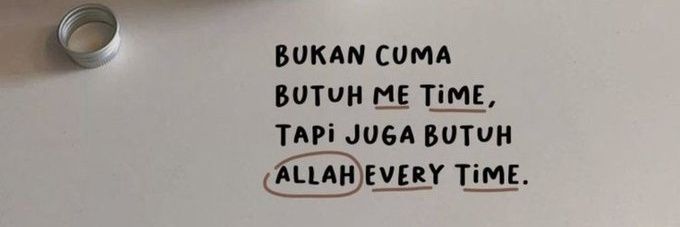 BUKAN CUMA
BUTUH ME TIME,
TAPI JUGA BUTUH
ALLAH EVERY TIME.